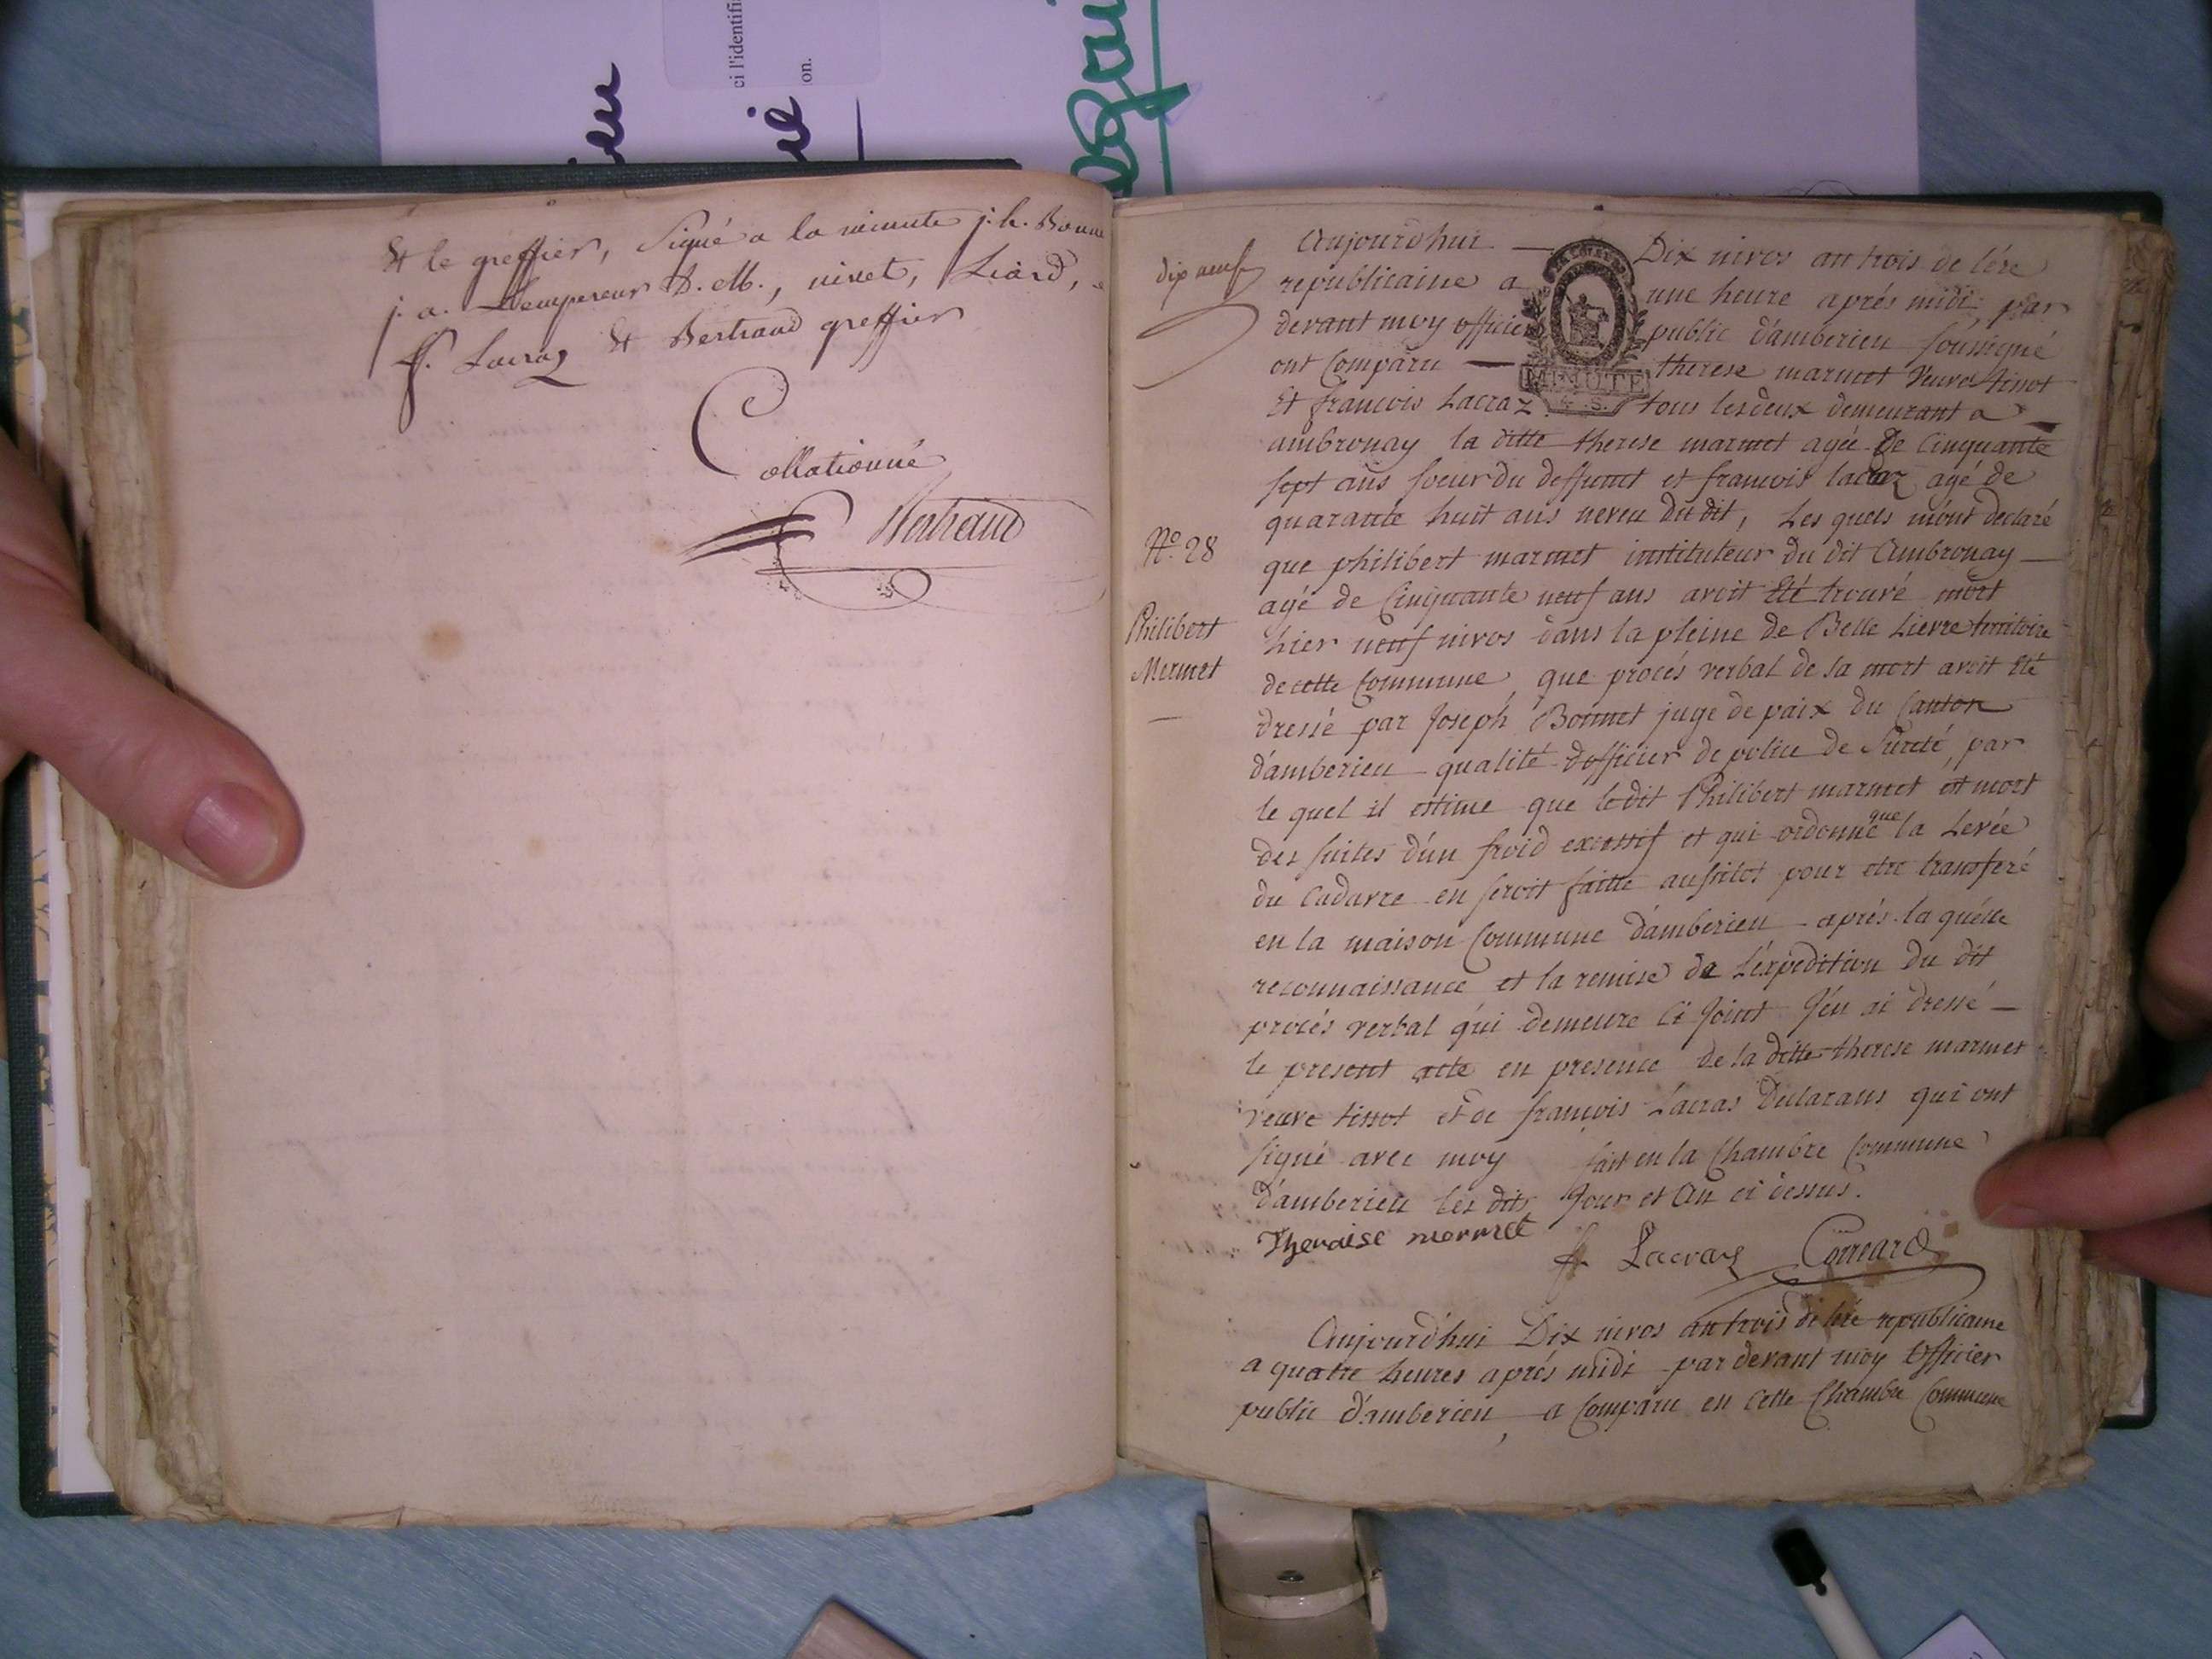 ci l'identifi
on.
Et le greffier, signé a la minute j. h. Bonne
j. a. Lempereur D. M., nivet, Liard,
ff. Lacraz Et Bertrand greffier
Collationné
Bertrand
dix neuf
Aujourdhui — Dix nivos an trois de lére
republicaine a une heure aprés midi par
devant moy officier public d'amberieu soussigné
ont Comparu — therese marmet veuve tissot
Et francois Lacraz tous les deux demeurant a —
ambronay la ditte therese marmet agée de Cinquante
sept ans soeur du deffunt et francois lacraz agé de
quarante huit ans neveu du dit, Les quels m'ont declaré
que philibert marmet instituteur du dit Ambronay —
agé de Cinquante neuf ans avoit Eté trouvé mort
hier neuf nivos dans la pleine de Belle Lievre territoire
de cette Commune, que procés verbal de sa mort avoit Eté
dressé par Joseph Bonnet juge de paix du Canton
d'amberieu qualité d'officier de police de sureté, par
le quel il estime que le dit Philibert marmet est mort
des suites d'un froid excessif et qui ordonne que la Levée
du Cadavre en seroit faitte aussitot pour etre transferé
en la maison Commune d'amberieu aprés la quelle
reconnaissance et la remise de L'expedition du dit
procés verbal qui demeure ci Joint J'en ai dressé —
le present acte en presence de la ditte therese marmet
veuve tissot et de francois Lacras Declarans qui ont
signé avec moy fait en la Chambre Commune
d'amberieu les dits Jour et An ci dessus.
N.º 28
Philibert
Mermet
—
Theraise mermet
ff. Lacraz Conneard
Aujourd'hui Dix nivos an trois de lére republicaine
a quatre heures aprés midi par devant moy Officier
public d'amberieu a Comparu en Cette Chambre Commune
MINUTE